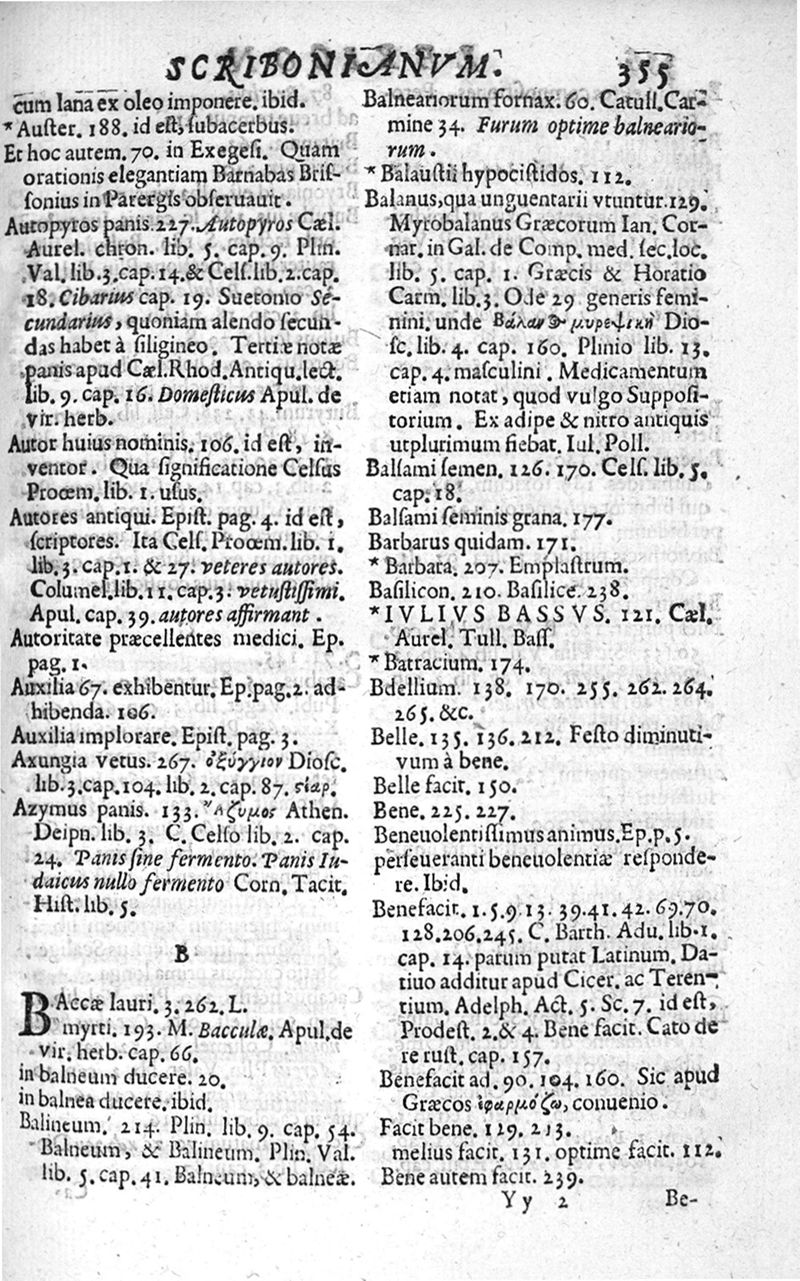 SCRIBONIANVM. 355
cum lana ex oleo imponere. ibid.
*Auster. 188. id est, subacerbus.
Et hoc autem. 70. in Exegesi. Quam
orationis elegantiam Barnabas Bris-
sonius in Parergis obseruauit.
Autopyros panis. 227. Autopyros Cæl.
Aurel. chron. lib. 5. cap. 9. Plin.
Val. lib. 3. cap. 14. & Cels. lib. 2. cap.
18. Cibarius cap. 19. Suetonio Se-
cundarius, quoniam alendo secun-
das habet à siligineo. Tertiæ notæ
panis apud Cæl. Rhod. Antiqu. lect.
lib. 9. cap. 16. Domesticus Apul. de
vir. herb.
Autor huius nominis. 106. id est, in-
ventor. Qua significatione Celsus
Prooem. lib. 1. usus.
Autores antiqui. Epist. pag. 4. id est,
scriptores. Ita Cels. Prooem. lib. 1.
lib. 3. cap. 1. & 27. veteres autores.
Columel. lib. 11. cap. 3. vetustissimi.
Apul. cap. 39. autores affirmant.
Autoritate præcellentes medici. Ep.
pag. 1.
Auxilia 67. exhibentur. Ep. pag. 2. ad-
hibenda. 106.
Auxilia implorare. Epist. pag. 3.
Axungia vetus. 267. ὀξύγγιον Diosc.
lib. 3. cap. 104. lib. 2. cap. 87. στέαρ.
Azymus panis. 133. Ἄζυμος Athen.
Deipn. lib. 3. C. Celso lib. 2. cap.
24. Panis sine fermento. Panis Iu-
daicus nullo fermento Corn. Tacit.
Hist. lib. 5.
B
BAccæ lauri. 3. 262. L.
myrti. 193. M. Bacculæ. Apul. de
vir. herb. cap. 66.
in balneum ducere. 20.
in balnea ducere. ibid.
Balineum. 214. Plin. lib. 9. cap. 54.
Balneum, & Balineum. Plin. Val.
lib. 5. cap. 41. Balneum, & balneæ.
Balneariorum fornax. 60. Catull. Car-
mine 34. Furum optime balneario-
rum.
*Balaustii hypocistidos. 112.
Balanus, qua unguentarii vtuntur. 129.
Myrobalanus Græcorum Ian. Cor-
nar. in Gal. de Comp. med. sec. loc.
lib. 5. cap. 1. Græcis & Horatio
Carm. lib. 3. Ode 29 generis femi-
nini. unde Βάλανος μυρεψικὴ Dio-
sc. lib. 4. cap. 160. Plinio lib. 13.
cap. 4. masculini. Medicamentum
etiam notat, quod vulgo Supposi-
torium. Ex adipe & nitro antiquis
utplurimum fiebat. Iul. Poll.
Balsami semen. 126. 170. Cels. lib. 5.
cap. 18.
Balsami seminis grana. 177.
Barbarus quidam. 171.
*Barbara. 207. Emplastrum.
Basilicon. 210. Basilice. 238.
*IVLIVS BASSVS. 121. Cæl.
Aurel. Tull. Bass.
*Batracium. 174.
Bdellium. 138. 170. 255. 262. 264.
265. &c.
Belle. 135. 136. 212. Festo diminuti-
vum à bene.
Belle facit. 150.
Bene. 225. 227.
Beneuolentissimus animus. Ep. p. 5.
perseueranti beneuolentiæ responde-
re. Ibid.
Benefacit. 1. 5. 9. 13. 39. 41. 42. 69. 70.
128. 206. 245. C. Barth. Adu. lib. 1.
cap. 14. parum putat Latinum. Da-
tiuo additur apud Cicer. ac Teren-
tium. Adelph. Act. 5. Sc. 7. id est,
Prodest. 2. & 4. Bene facit. Cato de
re rust. cap. 157.
Benefacit ad. 90. 104. 160. Sic apud
Græcos ἐφαρμόζω, conuenio.
Facit bene. 129. 213.
melius facit. 131. optime facit. 112.
Bene autem facit. 239.
Yy 2 Be-